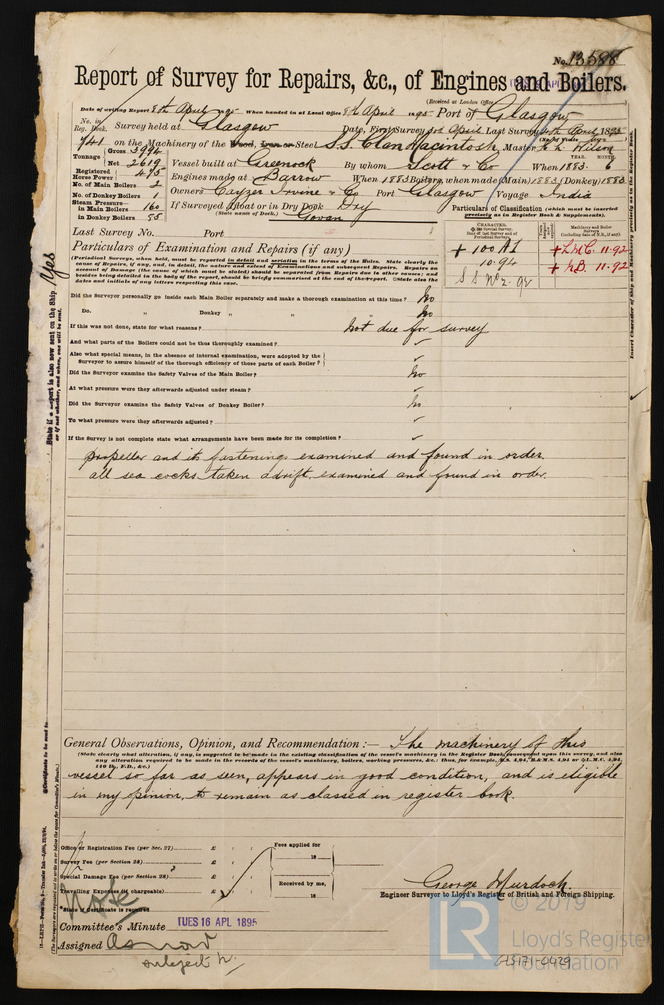 No. 13588
Report of Survey for Repairs, &c., of Engines and Boilers.
(Received at London Office
Date of writing Report 8th April 1895 When handed in at Local Office 8th April 1895 Port of Glasgow
No. in Reg. Book. Survey held at Glasgow Date, First Survey 3rd April Last Survey April 1895
741 on the Machinery of the Wood, Iron or Steel S.S. Clan Macintosh, Master
Tonnage Gross 3994 Net 2619 Vessel built at Greenock By whom Scott & Co When 1883 6
YEAR. MONTH.
Registered Horse Power 475 Engines made at Barrow When 1883 Boilers, when made (Main) 1883 (Donkey) 1883
No. of Main Boilers 2
No. of Donkey Boilers 1 Owners Cayzer Irvine & Co Port Glasgow Voyage India
Steam Pressure in Main Boilers 160 If Surveyed Afloat or in Dry Dock Dry
in Donkey Boilers 55 (State name of Dock.) Govan
Particulars of Classification (which must be inserted precisely as in Register Book & Supplements).
Last Survey No. Port
CHARACTER.
Machinery and Boiler Surveys
+ 100 A1 + L.M.C. 11-92
10.94 + N.B. 11.92
S.S. No 2. 92
Particulars of Examination and Repairs (if any)
(Periodical Survey, when held, must be reported in detail and seriatim in the terms of the Rules. State clearly the cause of Repairs, if any, and, in detail, the nature and extent of Examinations and subsequent Repairs. Repairs on account of Damage (the cause of which must be stated) should be separated from Repairs due to other causes; and besides being detailed in the body of the report, should be briefly summarised at the end of the report. State also the dates and initials of any letters respecting this case.
Did the Surveyor personally go inside each Main Boiler separately and make a thorough examination at this time? No
Do. „ Donkey „ „ No
If this was not done, state for what reasons? Not due for survey
And what parts of the Boilers could not be thoroughly examined? ✓
Also what special means, in the absence of internal examination, were adopted by the Surveyor to assure himself of the thorough efficiency of those parts of each Boiler? ✓
Did the Surveyor examine the Safety Valves of the Main Boiler? No
At what pressure were they afterwards adjusted under steam? ✓
Did the Surveyor examine the Safety Valves of Donkey Boiler? No
To what pressure were they afterwards adjusted? ✓
If the Survey is not complete state what arrangements have been made for its completion? ✓
propeller and its fastenings examined and found in order
all sea cocks taken adrift, examined and found in order.
General Observations, Opinion, and Recommendation:— The machinery of this
(State clearly what alteration, if any, is suggested to be made in the existing classification of the vessel's machinery in the Register Book, consequent upon this survey, and also any alteration required to be made in the records of the vessel's machinery, boilers, working pressures, &c.: thus, for example, M.S. 4,94, B.&M.S. 4,94 or L.M.C. 4,94, 140 lb, F.D., &c.)
vessel so far as seen, appears in good condition, and is eligible
in my opinion, to remain as classed in register book.
State if a Report is also now sent on the Ship Yes
or if not, whether, and when, one will be sent.
Insert Character of Ship and Machinery precisely as in the Register Book.
Office or Registration Fee (per Sec. 27) £ Fees applied for
Survey Fee (per Section 28) £ 18
Special Damage Fee (per Section 28) £ Received by me,
Travelling Expenses (if chargeable) £ 18
*State if Certificate is required
Note
George Murdoch.
Engineer Surveyor to Lloyd's Register of British and Foreign Shipping.
Committee's Minute TUES 16 APL 1895
Assigned As now
subject N.
© 2019
LR
Lloyd's Register
Foundation
GLS171-0429